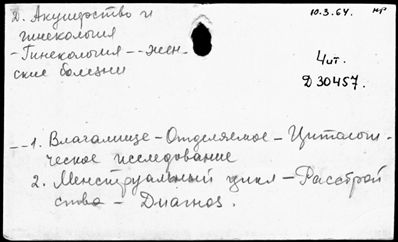 2. Акушерство и
гинекология
10.3.64. нр
- Гинекология -- жен-
ские болезни
Чит.
Д 30457.
-- 1. Влагалище - Отделяемое - Цитологи-
ческое исследование
2. Менструальный цикл - Расстрой
ства - Диагноз.